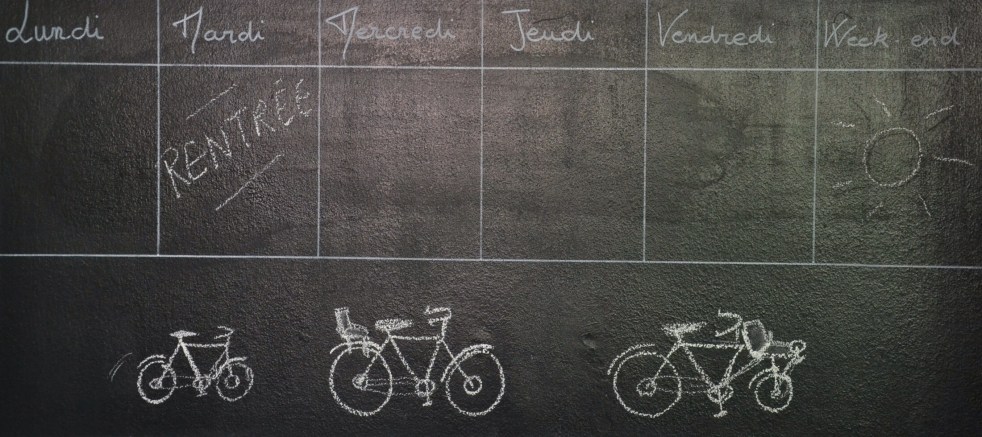 Lundi Mardi Mercredi Jeudi Vendredi Week-end
RENTRÉE